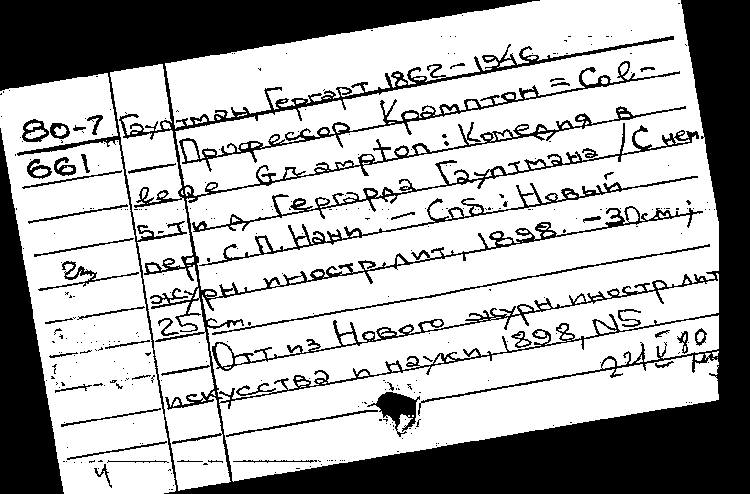 80-7 Гауптман, Гергарт, 1862-1946.
661 Профессор Крамптон = Col-
lege Grampton : Комедия в
5-ти д. Гергарда Гауптмана / С нем.
пер. С.П. Нани. — Спб. : Новый
журн. иностр. лит., 1898. - 30 см.;
25 cm.
Отт. из Нового журн. иностр. лит
искусства и науки, 1898, N5.